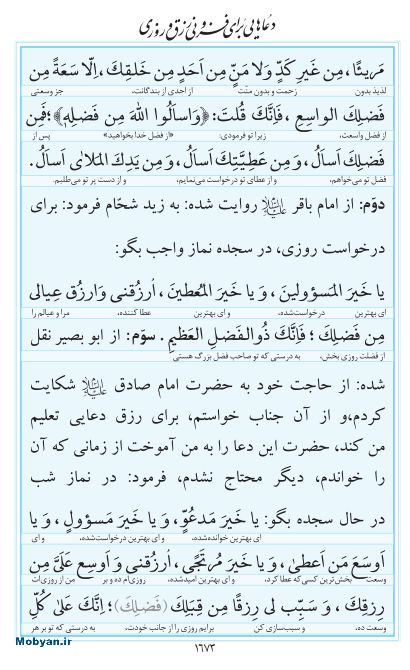 دعاهایی برای فزونی رزق و روزی
مَریئًا، مِن غَیرِ کَدٍّ وَلا مَنٍّ مِن اَحَدٍ مِن خَلقِکَ، اِلّا سَعَةً مِن
لذیذ بدون زحمت و بدون منّت از احدی از بندگانت، جز وسعتی
فَضلِکَ الواسِعِ ، فَاِنَّکَ قُلتَ: ﴿وَاسأَلُوا اللهَ مِن فَضلِهِ﴾؛ فَمِن
از فضل واسعت، زیرا تو فرمودی: «از فضل خدا بخواهید» پس از
فَضلِکَ اَسأَلُ ، وَ مِن عَطِیَّتِکَ اَسأَلُ ، وَ مِن یَدِکَ المَلای اَسأَلُ.
فضل تو می‌خواهم، و از عطای تو درخواست می‌نمایم، و از دست پر تو می‌طلبم.
دوّم: از امام باقر علیه‌السلام روایت شده: به زید شحّام فرمود: برای
درخواست روزی، در سجده نماز واجب بگو:
یا خَیرَ المَسؤولینَ ، وَ یا خَیرَ المُعطینَ ، اُرزُقنی وَارزُق عِیالی
ای بهترین درخواست‌شده، و ای بهترین عطا کننده، مرا و عیالم را
مِن فَضلِکَ ؛ فَاِنَّکَ ذُوالفَضلِ العَظیمِ. سوّم: از ابو بصیر نقل
از فضلت روزی بخش، به درستی که تو صاحب فضل بزرگ هستی
شده: از حاجت خود به حضرت امام صادق علیه‌السلام شکایت
کردم،و از آن جناب خواستم، برای رزق دعایی تعلیم
من کند، حضرت این دعا را به من آموخت از زمانی که آن
را خواندم، دیگر محتاج نشدم، فرمود: در نماز شب
در حال سجده بگو: یا خَیرَ مَدعُوٍّ، وَ یا خَیرَ مَسؤولٍ ، وَ یا
ای بهترین خوانده‌شده، و ای بهترین درخواست‌شده، و ای
اَوسَعَ مَن اَعطیٰ، وَ یا خَیرَ مُرتَجًی، اُرزُقنی وَ اَوسِع عَلَیَّ مِن
وسعت بخش‌ترین کسی که عطا کرد، و ای بهترین امیدشده، روزی‌ام ده و بر من از روزی‌ات
رِزقِکَ ، وَ سَبِّب لی رِزقًا مِن قِبَلِکَ (فَضلِکَ)؛ اِنَّکَ عَلیٰ کُلِّ
وسعت ده، و سبب‌سازی کن برایم روزی را از جانب خودت، به درستی که تو بر هر
۱۶۷۳
Mobyan.ir